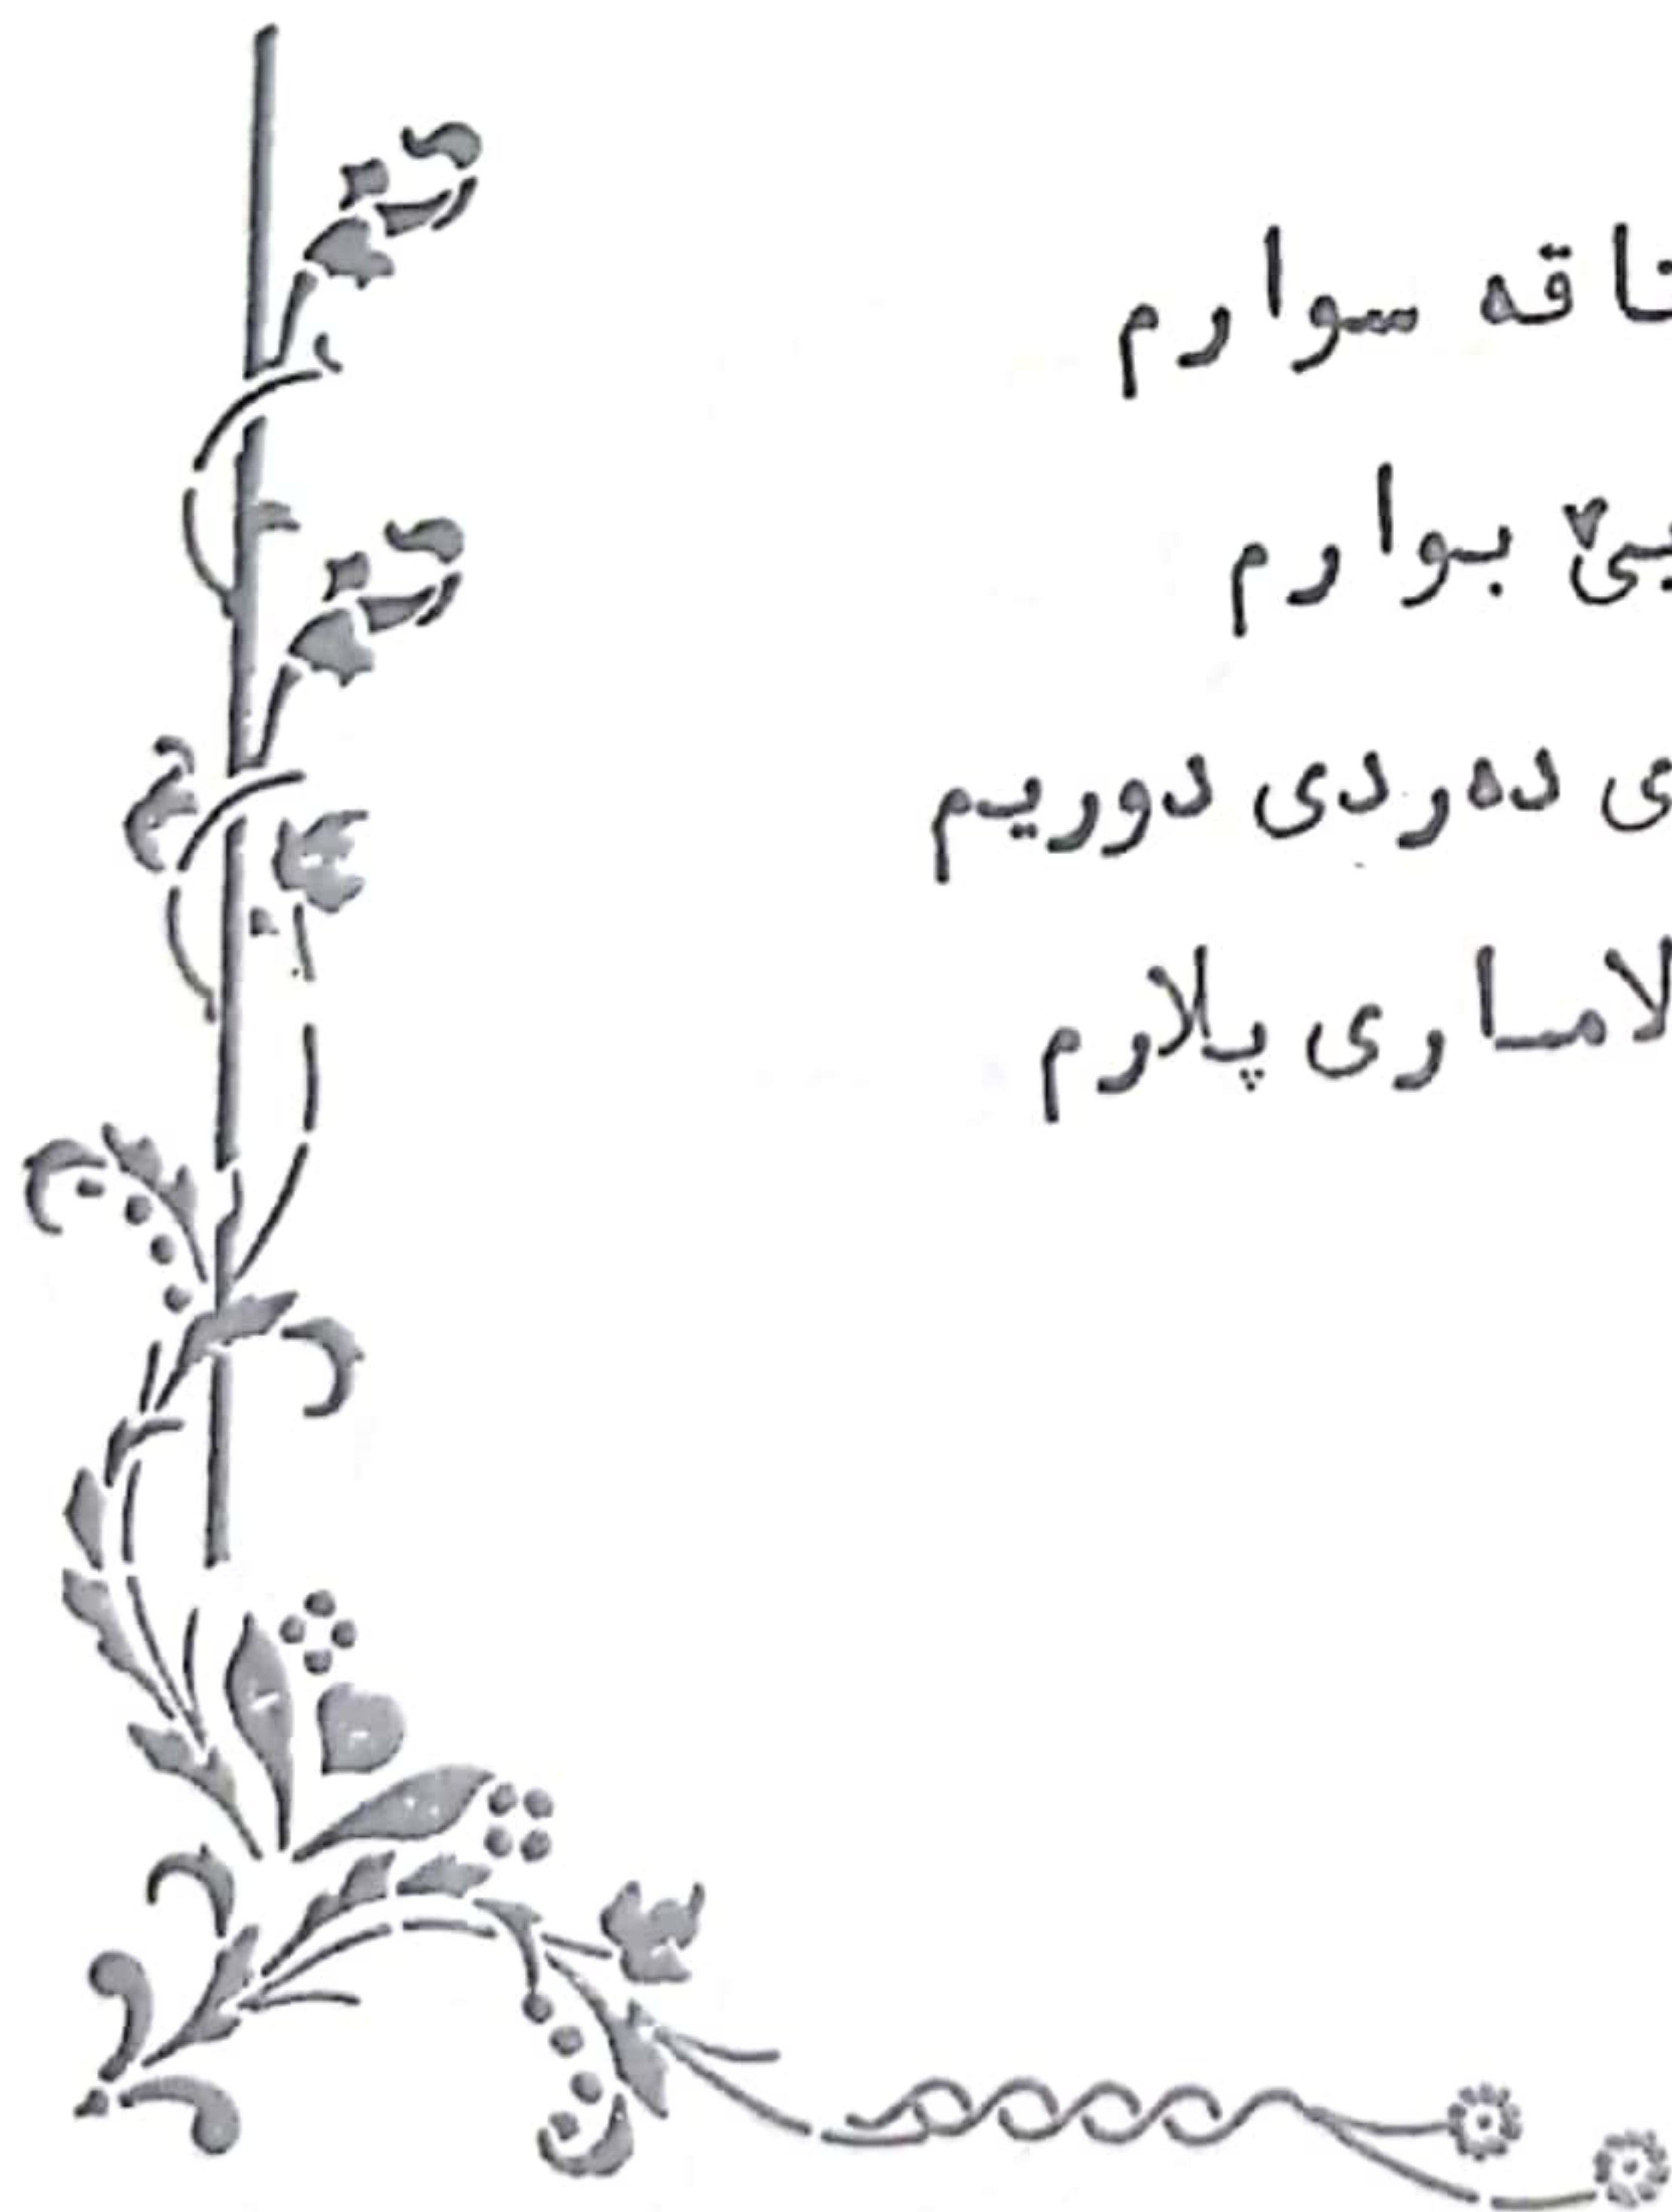 تاقە سوارم
بێ بوارم
ی دەردی دوریم
لاماری پلارم